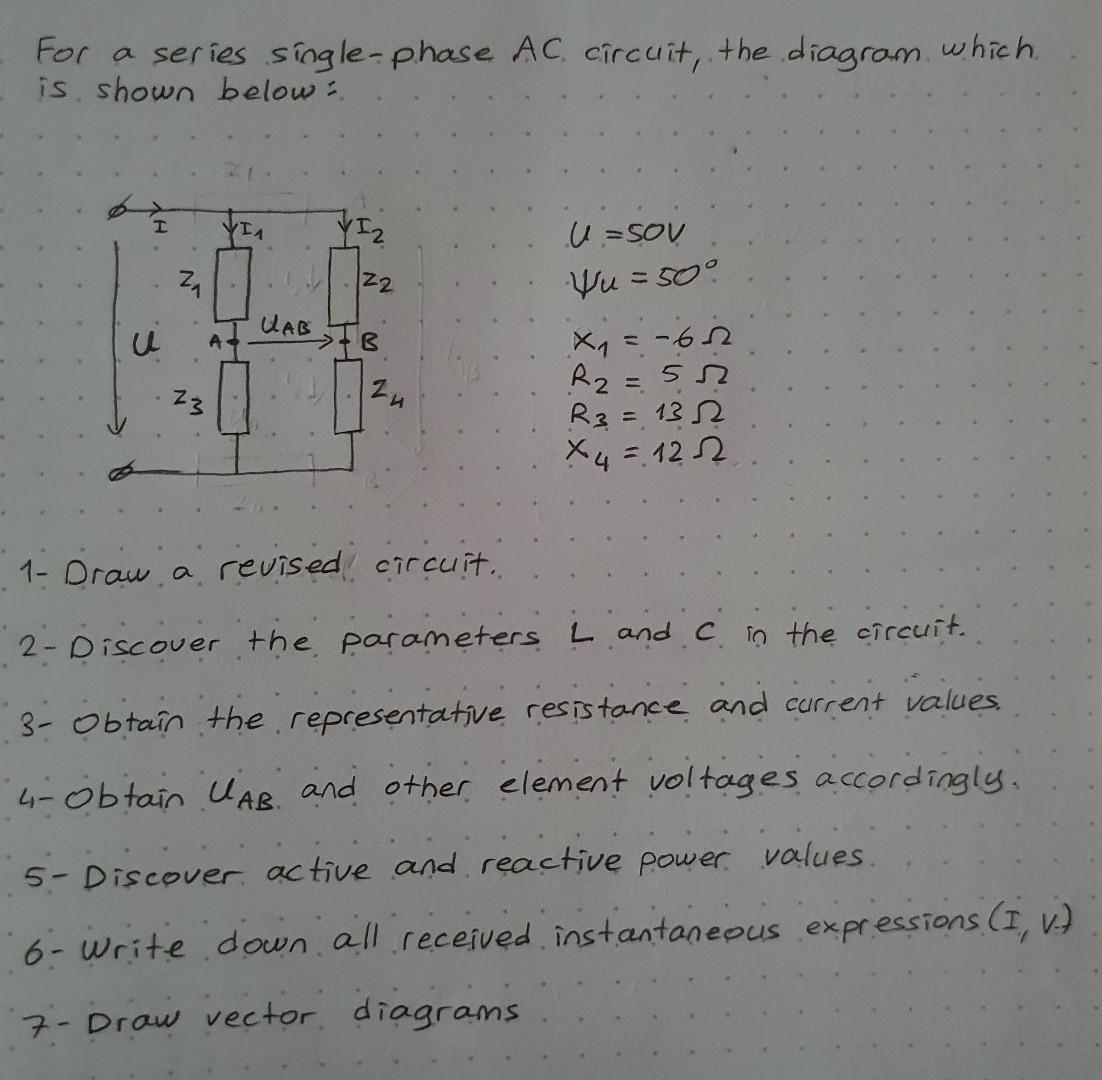 For a series single-phase AC circuit, the diagram which
is shown below:
I
I1
I2
U = 50V
Z1
Z2
Ψu = 50°
U
A
UAB
B
X1 = -6 Ω
R2 = 5 Ω
Z3
Z4
R3 = 13 Ω
X4 = 12 Ω
1- Draw a revised circuit.
2- Discover the parameters L and C in the circuit.
3- Obtain the representative resistance and current values.
4- Obtain UAB and other element voltages accordingly.
5- Discover active and reactive power values.
6- Write down all received instantaneous expressions (I, V.)
7- Draw vector diagrams